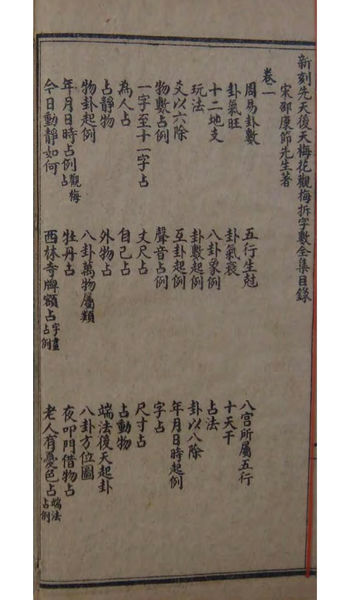 新刻先天後天梅花觀梅拆字數全集目錄
宋邵康節先生著
卷一
周易卦數　五行生尅　八宮所屬五行
卦氣旺　卦氣衰　十天干
十二地支　八卦象例　占法
玩法　卦數起例　卦以八除
爻以六除　互卦起例　年月日時起例
物數占例　聲音占例　字占
一字至十一字占　丈尺占　尺寸占
為人占　自己占　占動物
占靜物　外物占　端法後天起卦
物卦起例　八卦萬物屬類　八卦方位圖
年月日時占例觀梅占　牡丹占　夜叩門借物占
今日動靜如何　西林寺牌額占字畫占例　老人有憂色占端法占例